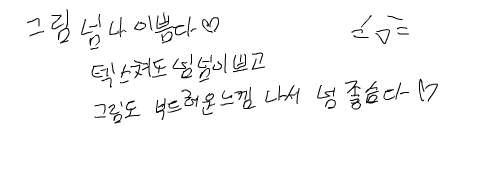 그림 넘나 이쁨다♡
텍스쳐도 넘넘이쁘고
그림도 부드러운느낌 나서 넘 좋슴다♡